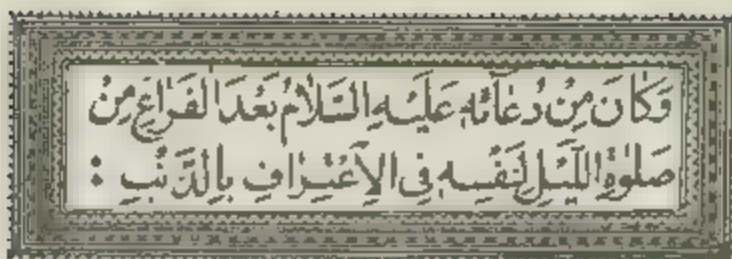 وَكَانَ مِنْ دُعَآئِهِ عَلَيْهِ السَّلَامُ بَعْدَ الْفَرَاغِ مِنْ
صَلٰوةِ اللَّيْلِ لِنَفْسِهِ فِي الْاِعْتِرَافِ بِالذَّنْبِ :